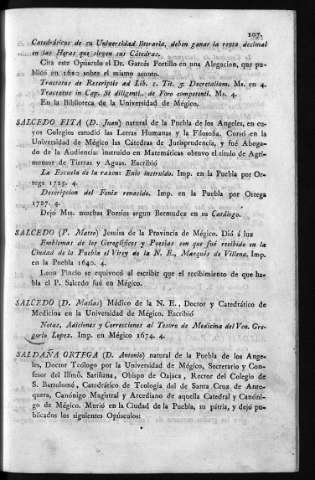 107.
Catedráticos de su Universidad literaria, deben ganar la renta decimal
en las Horas que leyen sus Cátedras.
Cita este Opúsculo el Dr. Garcés Portillo en una Alegacion, que pu-
blicó en 1620 sobre el mismo asunto.
Tractatus de Rescriptis ad Lib. 1. Tit. 3. Decretalium. Ms. en 4.
Tractatus in Cap. Si diligenti. de Foro competenti. Ms. 4.
En la Biblioteca de la Universidad de Mégico.
SALCEDO FITA (D. Juan) natural de la Puebla de los Angeles, en cu-
yos Colegios estudió las Letras Humanas y la Filosofia. Cursó en la
Universidad de Mégico las Cátedras de Jurisprudencia, y fué Aboga-
do de la Audiencia: instruido en Matemáticas obtuvo el título de Agri-
mensor de Tierras y Aguas. Escribió
La Escuela de la razon: Enio instruido. Imp. en la Puebla por Or-
tega 1725. 4.
Descripcion del Fenix renacido. Imp. en la Puebla por Ortega
1727. 4.
Dejó Mss. muchas Poesias segun Bermudez en su Catálogo.
SALCEDO (P. Mateo) Jesuita de la Provincia de Mégico. Dió á luz
Emblemas de los Geroglíficos y Poesias con que fué recibido en la
Ciudad de la Puebla el Virey de la N. E., Marqués de Villena. Imp.
en la Puebla 1640. 4.
Leon Pinelo se equivocó al escribir que el recibimiento de que ha-
bla el P. Salcedo fué en Mégico.
SALCEDO (D. Matias) Médico de la N. E., Doctor y Catedrático de
Medicina en la Universidad de Mégico. Escribió
Notas, Adiciones y Correcciones al Tesoro de Medicina del Ven. Gre-
gorio Lopez. Imp. en Mégico 1674. 4.
SALDAÑA ORTEGA (D. Antonio) natural de la Puebla de los Ange-
les, Doctor Teólogo por la Universidad de Mégico, Secretario y Con-
fesor del Illmô. Sariñana, Obispo de Oajaca, Rector del Colegio de
S. Bartolomé, Catedrático de Teologia del de Santa Cruz de Ante-
quera, Canónigo Magistral y Arcediano de aquella Catedral y Canóni-
go de Mégico. Murió en la Ciudad de la Puebla, su pátria, y dejó pu-
blicados los siguientes Opúsculos: